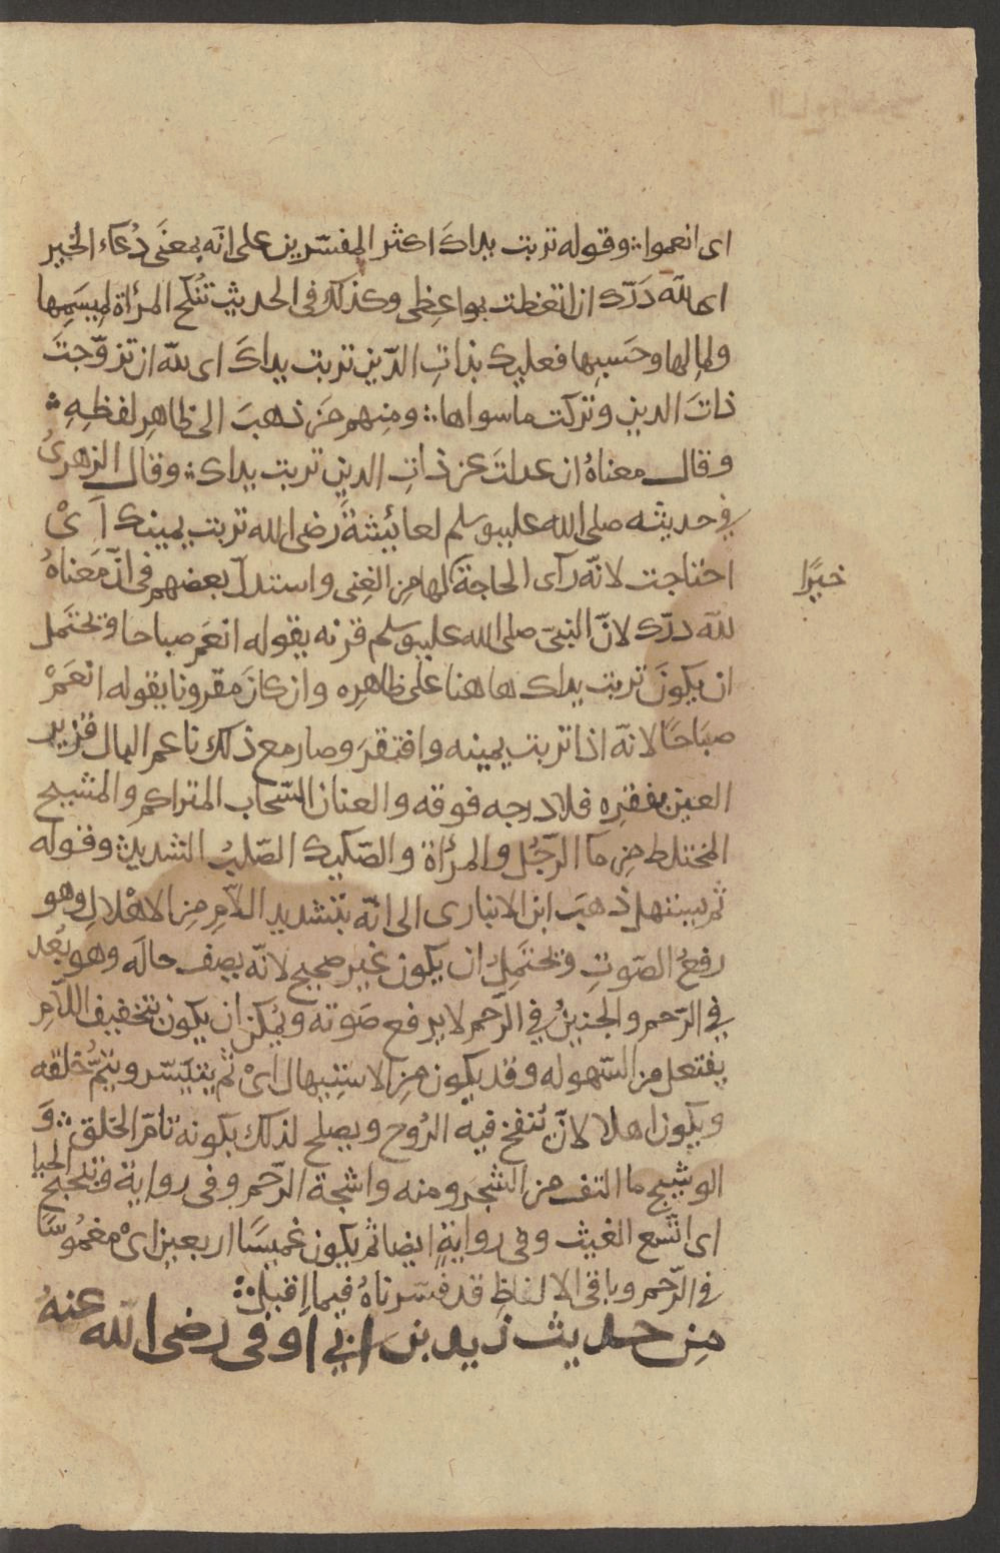 اى انعموا ∴ وقوله تربت يداكَ اكثر المفسّرين على انّه بمعنَى دُعَاء الخير
اى لله دَرّك ان اتعظت بواعِظى وكذلك فى الحديث تُنكَح المرأة لِميسَمِها
ولِمالها وحَسبِها فعليك بذاتِ الدّين تربت يداكَ اى لله ان تزوّجتَ
ذاتَ الدين وتركت ما سواها ∴ ومنهم مَن ذهبَ الى ظاهِرِ لفظِهِ ∴
وقال معناهُ ان عدلتَ عن ذاتِ الدينِ تربت يداك ∴ وقال الزهرىُ
فى حديثه صلى الله عليه وسلم لعائيشةَ رضى الله تربت يمينك أىْ
احتاجت لانّه رآى الحاجةَ لها مِن الغِنى واستدلّ بعضهم فى انّ مَعناهُ
خيرًا
لله درّك لانّ النبىّ صلى الله عليه وسلم قرنه بقوله انعَم صباحا ويحتَمل
ان يكونَ تربت يداك هاهنا على ظاهِره وان كانَ مقرونا بقوله انعَمْ
صبَاحًا لانّه اذا تربت يمينه وافتقرَ وصار مع ذلك ناعم البال قرير
العين بفقرِه فلا درجه فوقه والعنان السّحاب المتراكم والمشيج
المختلط مِن مآ الرّجُل والمرأة والصّكيك الصّلبُ الشديد وقوله
ثم يستهل ذهبَ ابن الانبارى الى انّه بتشديد اللّامِ مِن الاهْلالِ وهو
رفعُ الصّوتِ ويحتَمِلُ ان يكون غير صحيح لانّه يصف حالَه وهو بُعد
فى الرّحم والجنينُ فى الرّحم لا يرفع صَوته ويُمكن ان يكون بتخفيف اللّامِ
يفتعل من السّهوله وقد يكون مِن الاستبهال اىْ ثم يتيَسّر ويتمُّ خلقه
ويكون اهلا لانّ تُنفخ فيه الرُوح ويصلح لذلك بكونه تامّ الخلق ∴ وَ
الوشيج ما التف من الشجر ومنه واشجة الرّحم وفى رواية فتلحبج الحيا
اى اتّسع الغيث وفى روايةٍ ايضا ثم يكون غميسًا اربعين اىْ مغمُوسًا
فى الرّحم وباقى الالفاظِ قد فسّرناهُ فيما اقبل ∴
مِن حديث زيد بن ابى اوفى رضى الله عنهُ